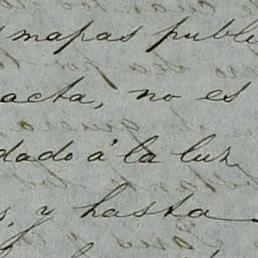 mapas publi
acta, no es
dado á la luz
s, y hasta